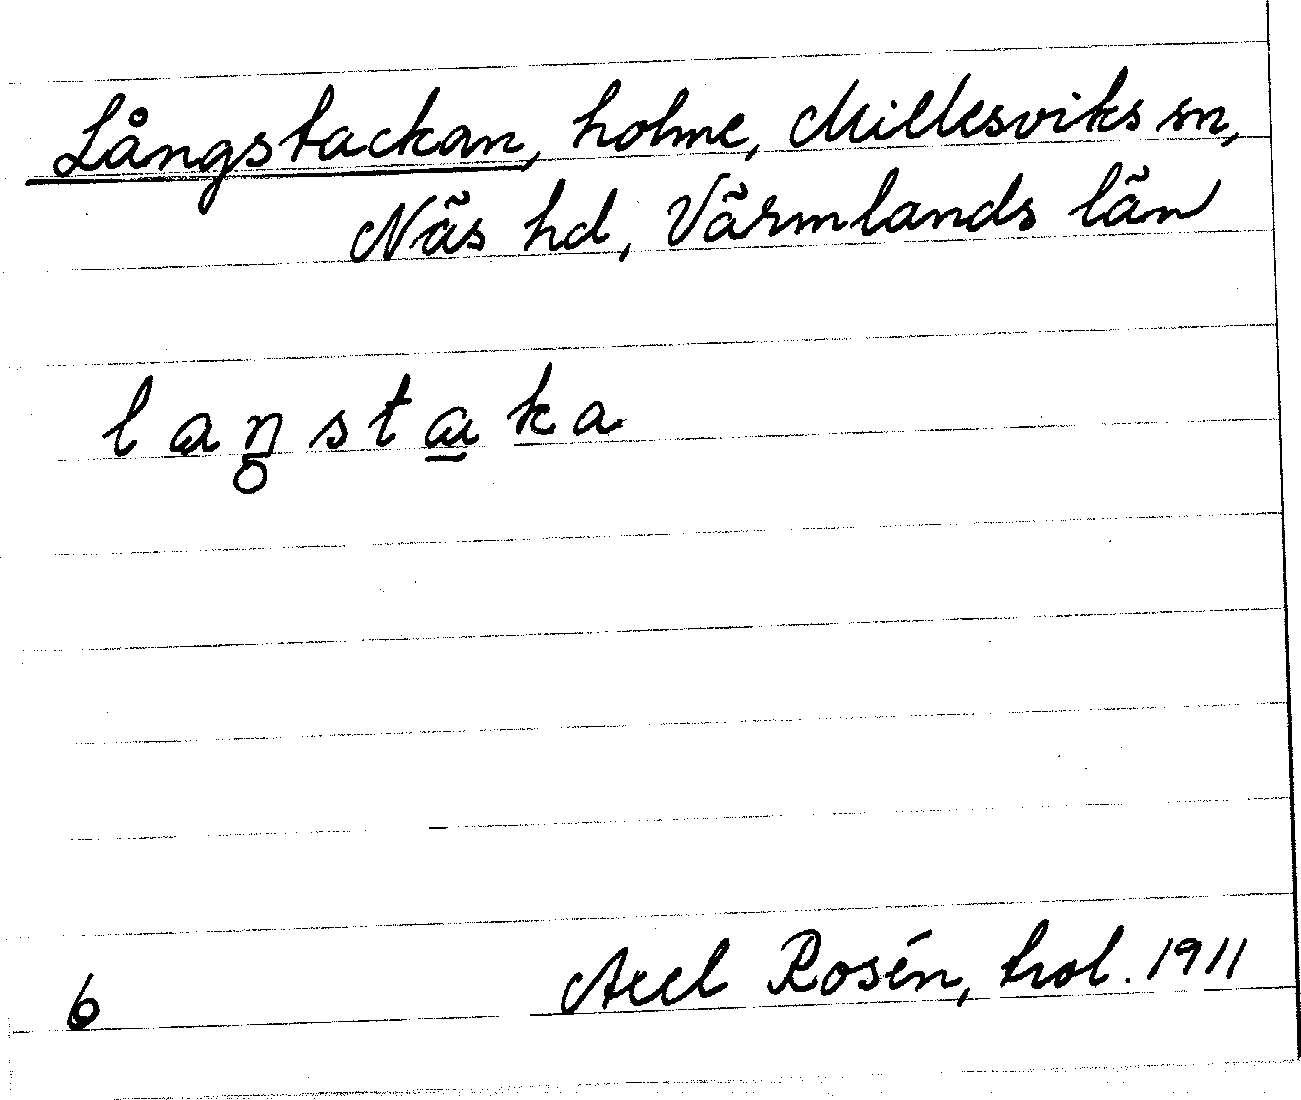 Långstackan, holme, Millesviks sn,
Näs hd, Värmlands län
laŋ̥sta̲k̲a
6 Axel Rosén, trol. 1911